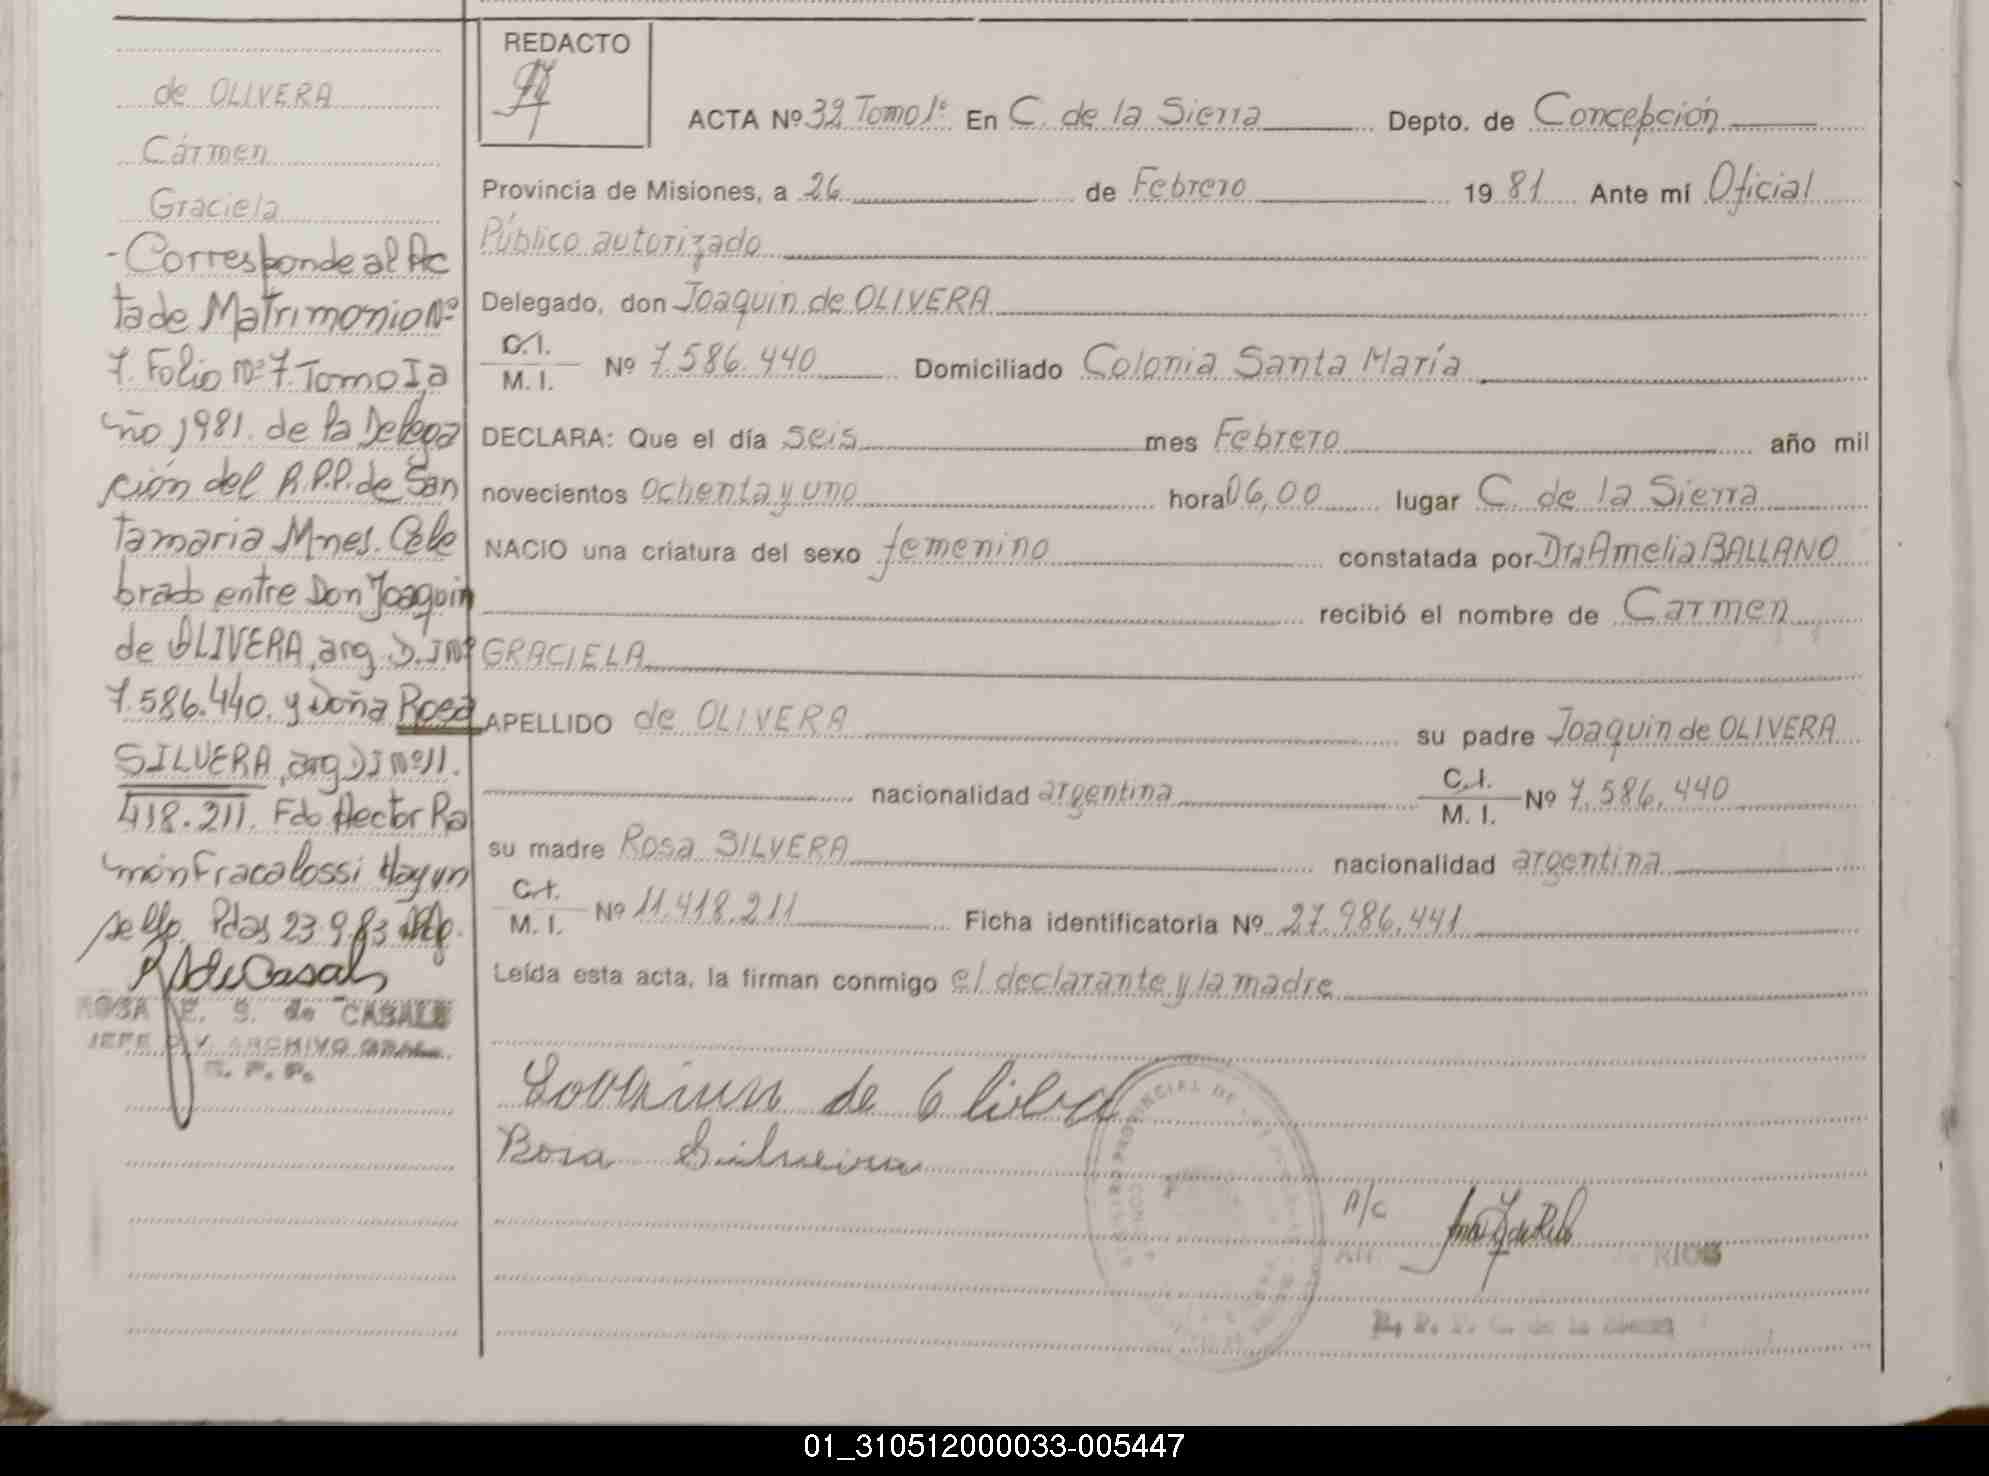 de OLIVERA
Cármen
Graciela
- Corresponde al Ac
ta de Matrimonio Nº
7. Folio Nº 7. Tomo I, a
ño 1981. de la Delega
ción del R.P.P. de San
tamaria Mnes. Cele
brado entre Don Joaquin
de OLIVERA, arg. D.I Nº
7.586.440. y Doña Rosa
SILVERA, arg D I Nº 11.
418.211. Fdo Hector Ra
món Fracalossi Hay un
sello. Pdas 23.9.83
ROSA E. S. de CASALS
JEFE DIV. ARCHIVO GRAL.
R. P. P.
REDACTO
ACTA Nº 32 Tomo 1º En C. de la Sierra Depto. de Concepción
Provincia de Misiones, a 26 de Febrero 1981 Ante mí Oficial
Público autorizado
Delegado, don Joaquin de OLIVERA
C.I.
M. I. Nº 7.586.440 Domiciliado Colonia Santa María
DECLARA: Que el día seis mes Febrero año mil
novecientos ochenta y uno hora 06,00 lugar C. de la Sierra
NACIO una criatura del sexo femenino constatada por Dra Amelia BALLANO
recibió el nombre de Carmen
GRACIELA
APELLIDO de OLIVERA su padre Joaquin de OLIVERA
nacionalidad argentina C.I. M. I. Nº 7.586.440
su madre Rosa SILVERA nacionalidad argentina
C.I.
M. I. Nº 11.418.211 Ficha identificatoria Nº 27.986.441
Leída esta acta, la firman conmigo el declarante y la madre
Rosa Silveira
A/C
RIOS
01_310512000033-005447